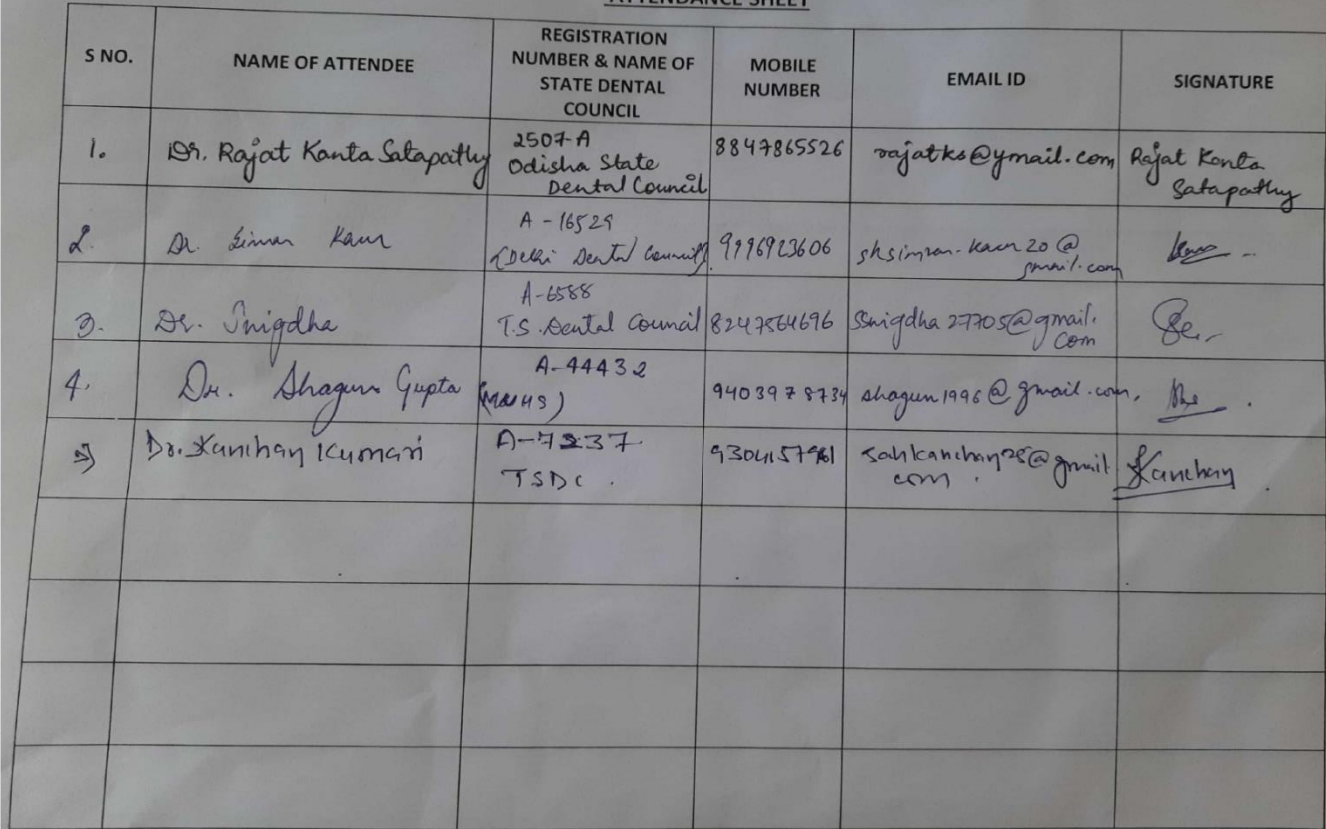 ATTENDANCE SHEET
S NO.
NAME OF ATTENDEE
REGISTRATION
NUMBER & NAME OF
STATE DENTAL
COUNCIL
MOBILE
NUMBER
EMAIL ID
SIGNATURE
1.
Dr. Rajat Kanta Satapathy
2507-A
Odisha State
Dental Council
8847865526
rajatks@ymail.com
Rajat Kanta
Satapathy
2.
Dr. Simran Kaur
A - 16529
(Delhi Dental Council)
9996923606
shsimran.kaur20@
gmail.com
3.
Dr. Snigdha
A-6588
T.S. Dental Council
8247564696
Snigdha27705@gmail.
com
4.
Dr. Shagun Gupta
A-44432
9403978734
shagun1996@gmail.com,
5)
Dr. Kanchan Kumari
A-7237
TSDC.
9304157961
sahkanchan28@gmail
com.
Kanchan